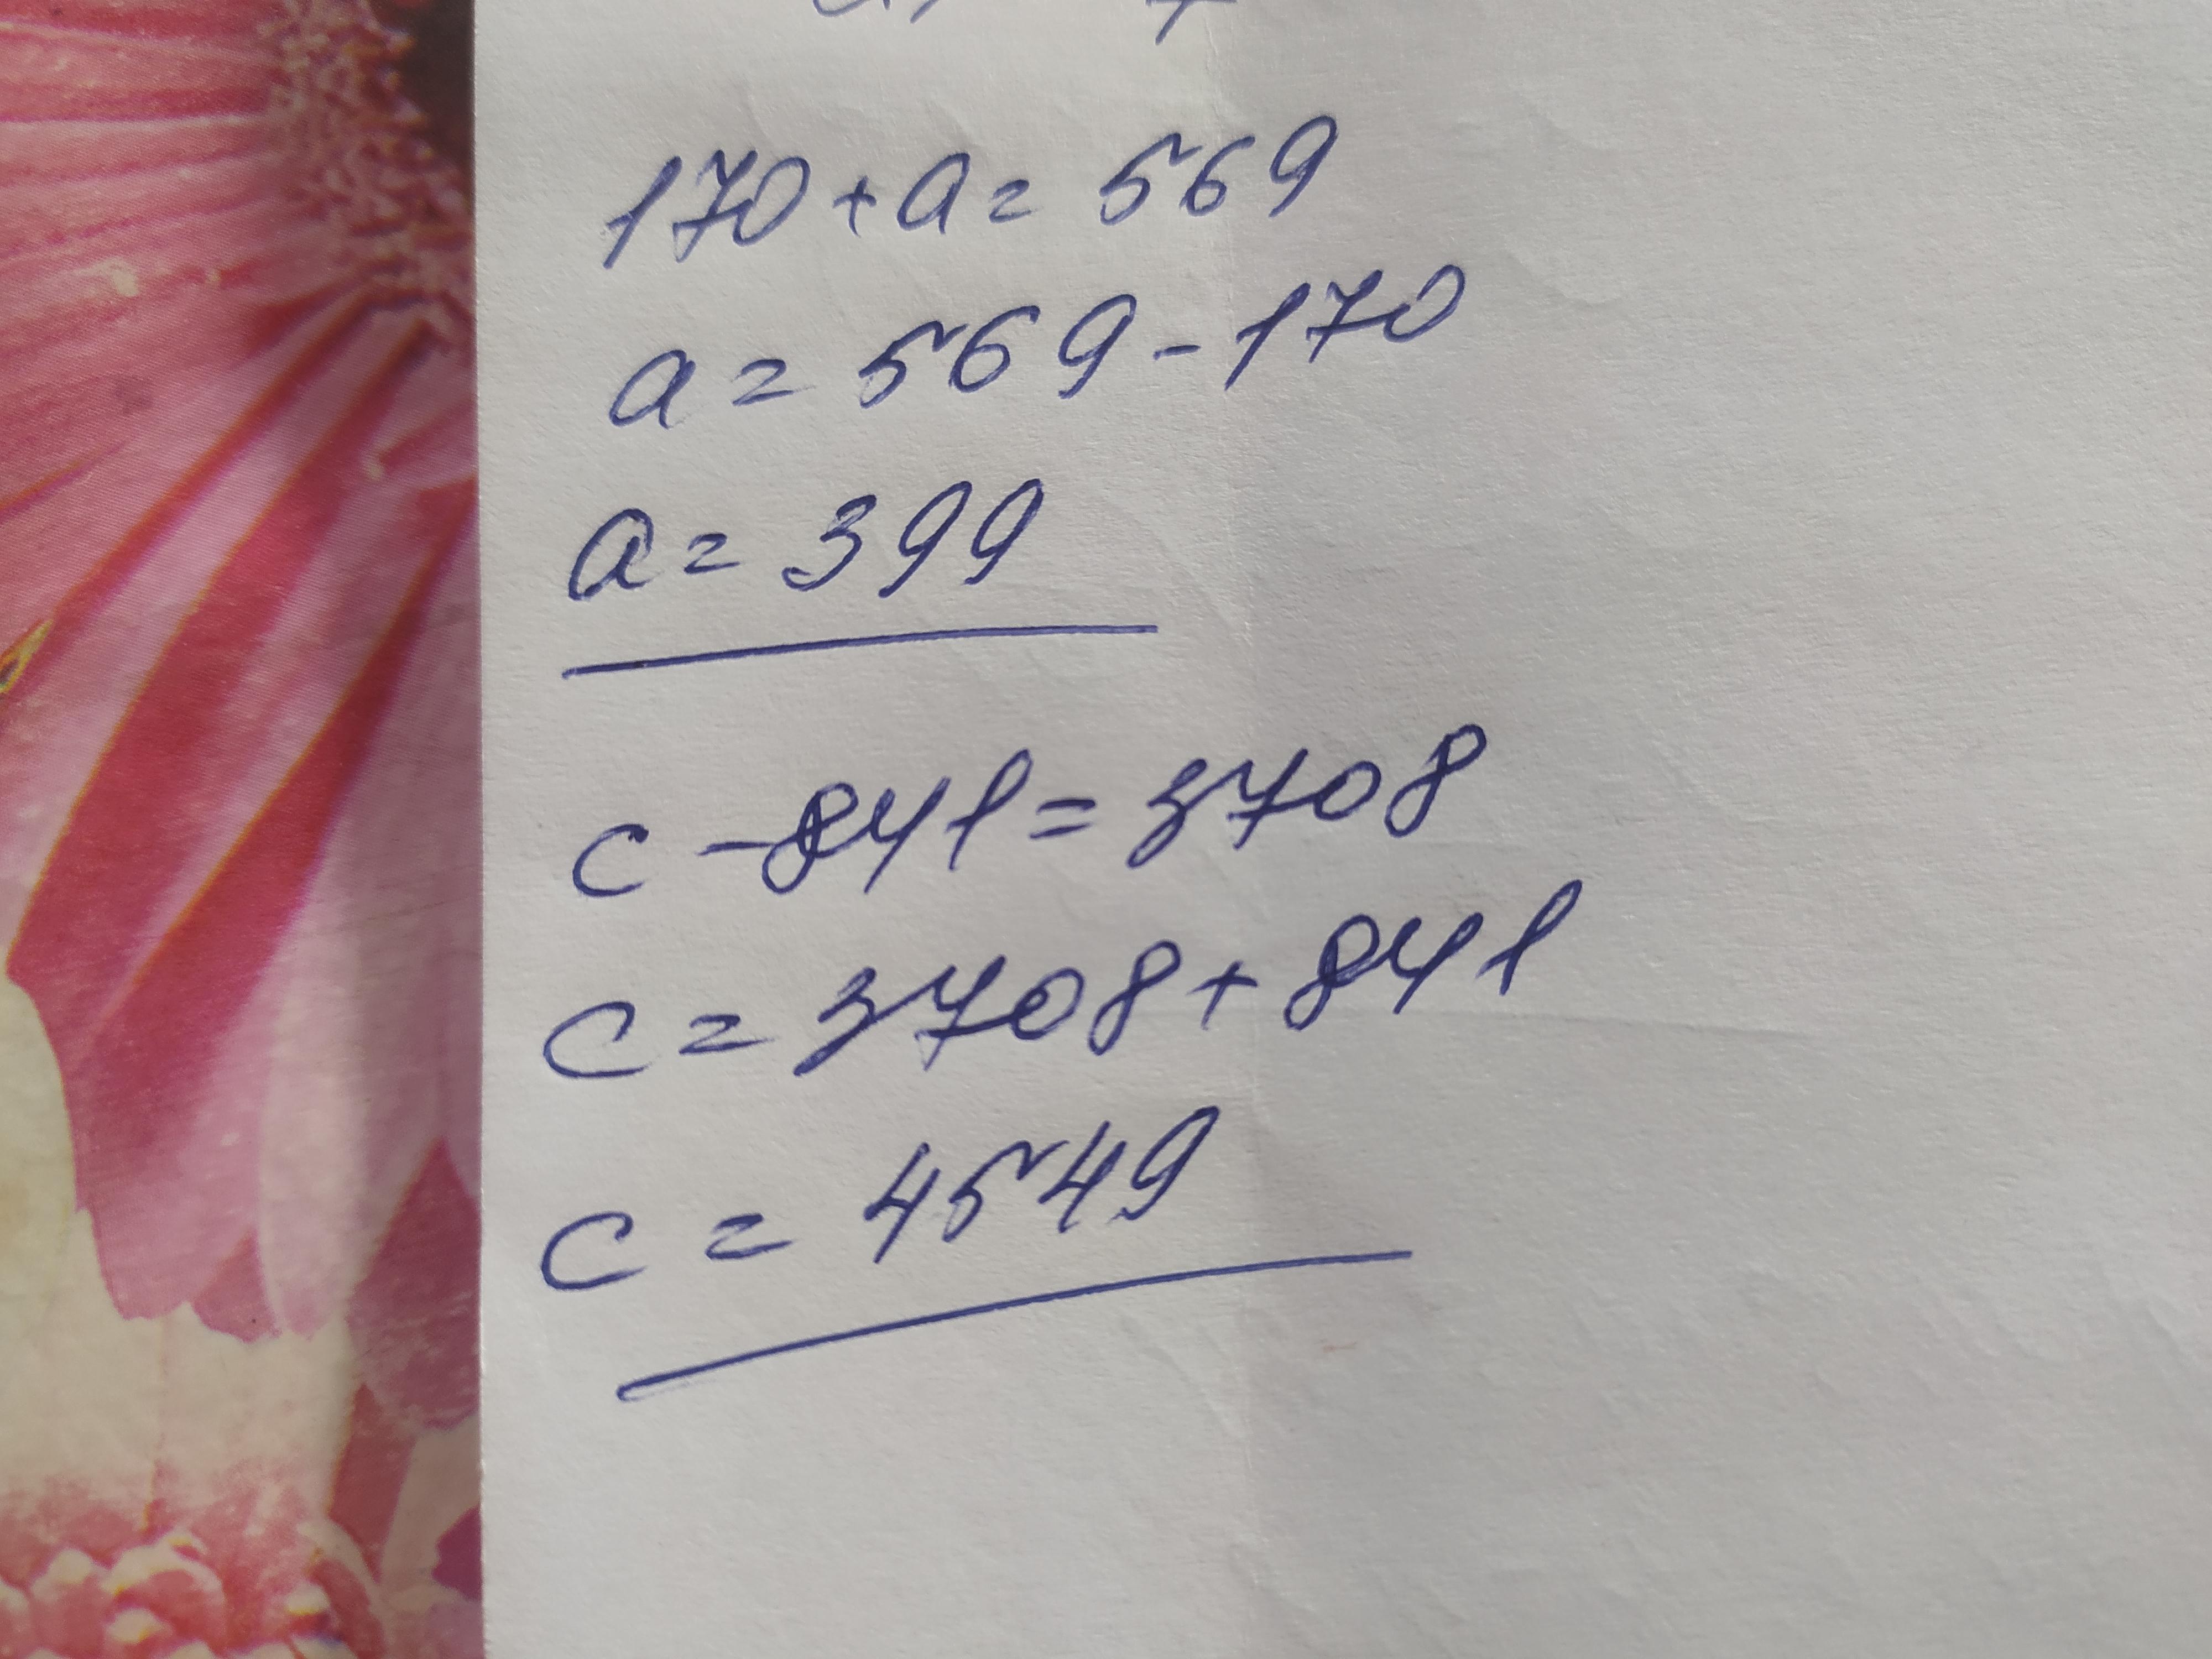 170 + a = 569
a = 569 - 170
a = 399
c - 841 = 3708
c = 3708 + 841
c = 4549